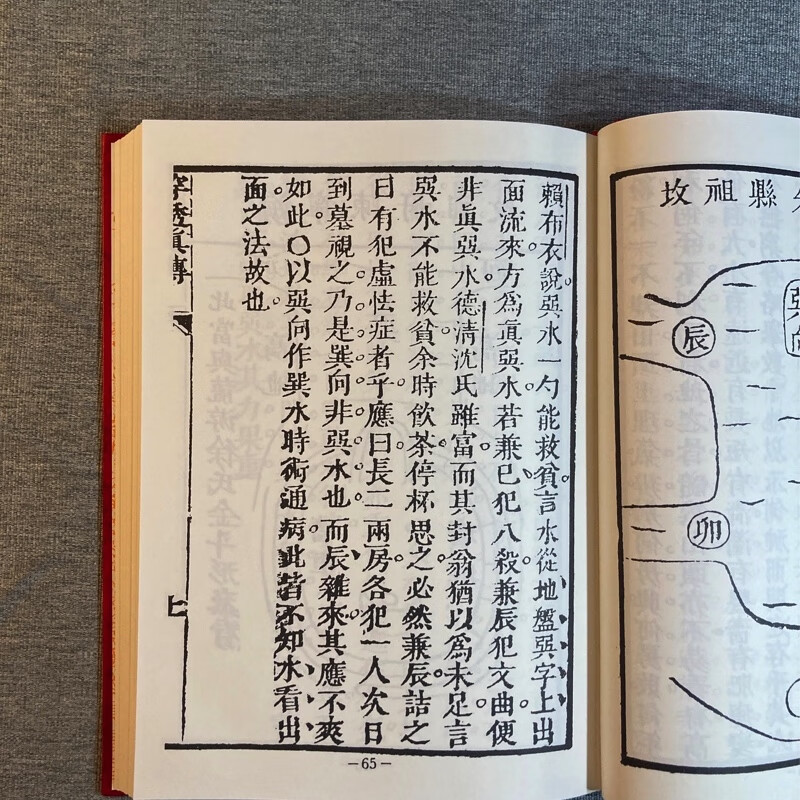 賴布衣說巽水一勺能救貧。言水從地盤巽字上出
面流來。方爲眞巽水。若兼巳犯八殺。兼辰犯文曲。便
非眞巽水。德清沈氏雖富。而其封翁猶以爲未足。言
巽水不能救貧。余時飲茶。停杯思之。必然兼辰。詰之
曰有犯虛怯症者乎。應曰長二兩房。各犯一人。次日
到墓視之。乃是巽向。非巽水也。而辰雜來。其應不爽
如此。〇以巽向作巽水。時術通病。此皆不知水看出
面之法故也。
字透眞傳
上
—65—
縣祖坟
巽向
辰
卯